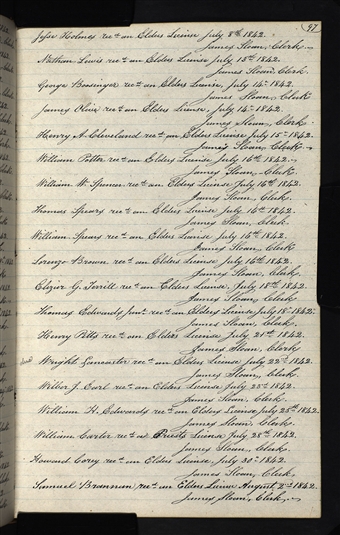 97
Jesse Holmes rec.d an Elders License July 8th 1842.
James Sloan, Clerk.
Nathan Lewis rec.d an Elders License July 13th 1842.
James Sloan, Clerk.
George Bosinger rec.d an Elders License, July 14th 1842.
James Sloan, Clerk
James Olive rec.d an Elders License, July 14th 1842.
James Sloan, Clerk
Henry A. Cleveland rec.d an Elders License July 15th 1842.
James Sloan, Clerk
William Potter rec.d an Elders License July 16th 1842.
James Sloan, Clerk.
William W. Spencer rec.d an Elders License July 16th 1842.
James Sloan, Clerk.
Thomas Spears rec.d an Elders License July 16th 1842.
James Sloan, Clerk.
William Spears rec.d an Elders License July 16th 1842.
James Sloan, Clerk
Lorenzo Brown rec.d an Elders License, July 16th 1842.
James Sloan, Clerk.
G. Terrill rec.d an Elders License, July 18th 1842.
James Sloan, Clerk
Thomas Edwards Junr. rec.d an Elders License July 18th 1842.
James Sloan, Clerk.
Henry Pitts rec.d an Elders License July 21st 1842.
James Sloan, Clerk
Wright Lancaster rec.d an Elders License July 22nd 1842.
James Sloan, Clerk.
Wilber J. Earl rec.d an Elders License July 25th 1842.
James Sloan, Clerk.
William H. Edwards rec.d an Elders License July 25th 1842.
James Sloan, Clerk.
William Carter rec.d a Priests License July 28th 1842.
James Sloan, Clerk.
Howard Corey rec.d an Elders License, July 30th 1842.
James Sloan, Clerk.
Samuel Brannan rec.d an Elders License August 2nd 1842.
James Sloan, Clerk,